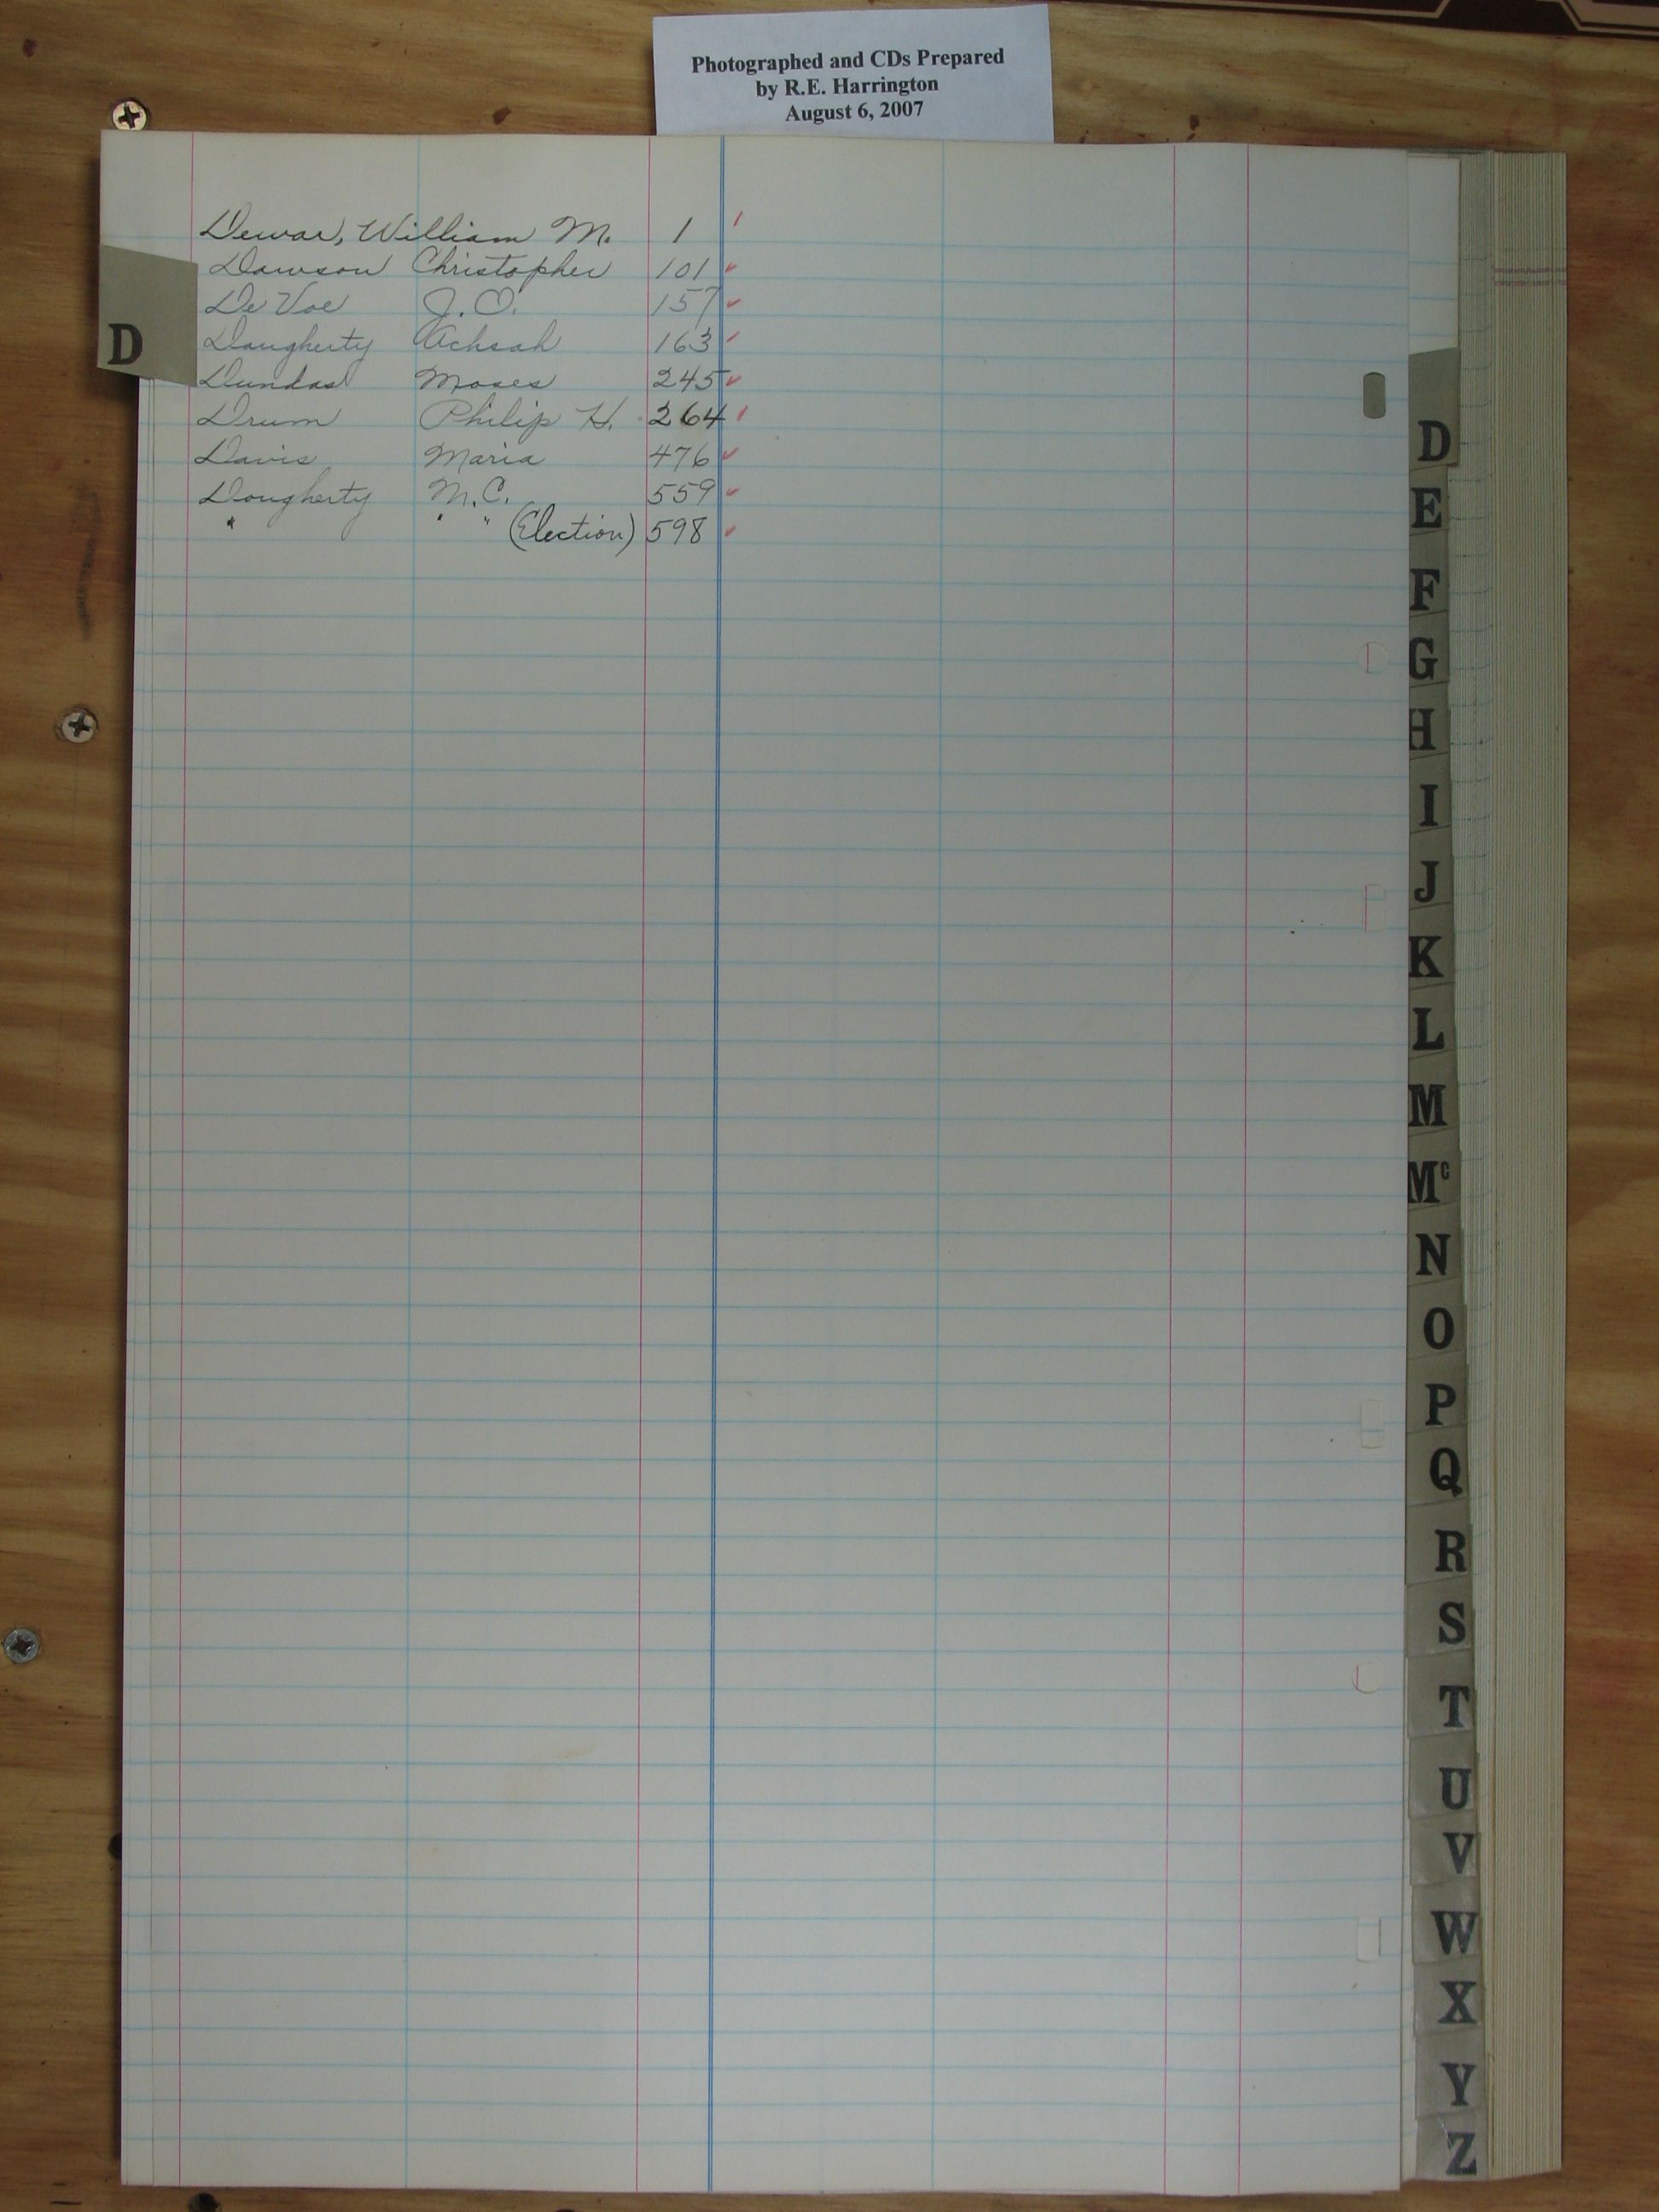 Photographed and CDs Prepared
by R.E. Harrington
August 6, 2007
Dewar, William M. 1
Dawson Christopher 101
De Voe J. O. 157
Daugherty Achsah 163
Dundas Moses 245
Drum Philip H. 264
Davis Maria 476
Dougherty M. C. 559
" " " (Election) 598
D
D
E
F
G
H
I
J
K
L
M
Mc
N
O
P
Q
R
S
T
U
V
W
X
Y
Z